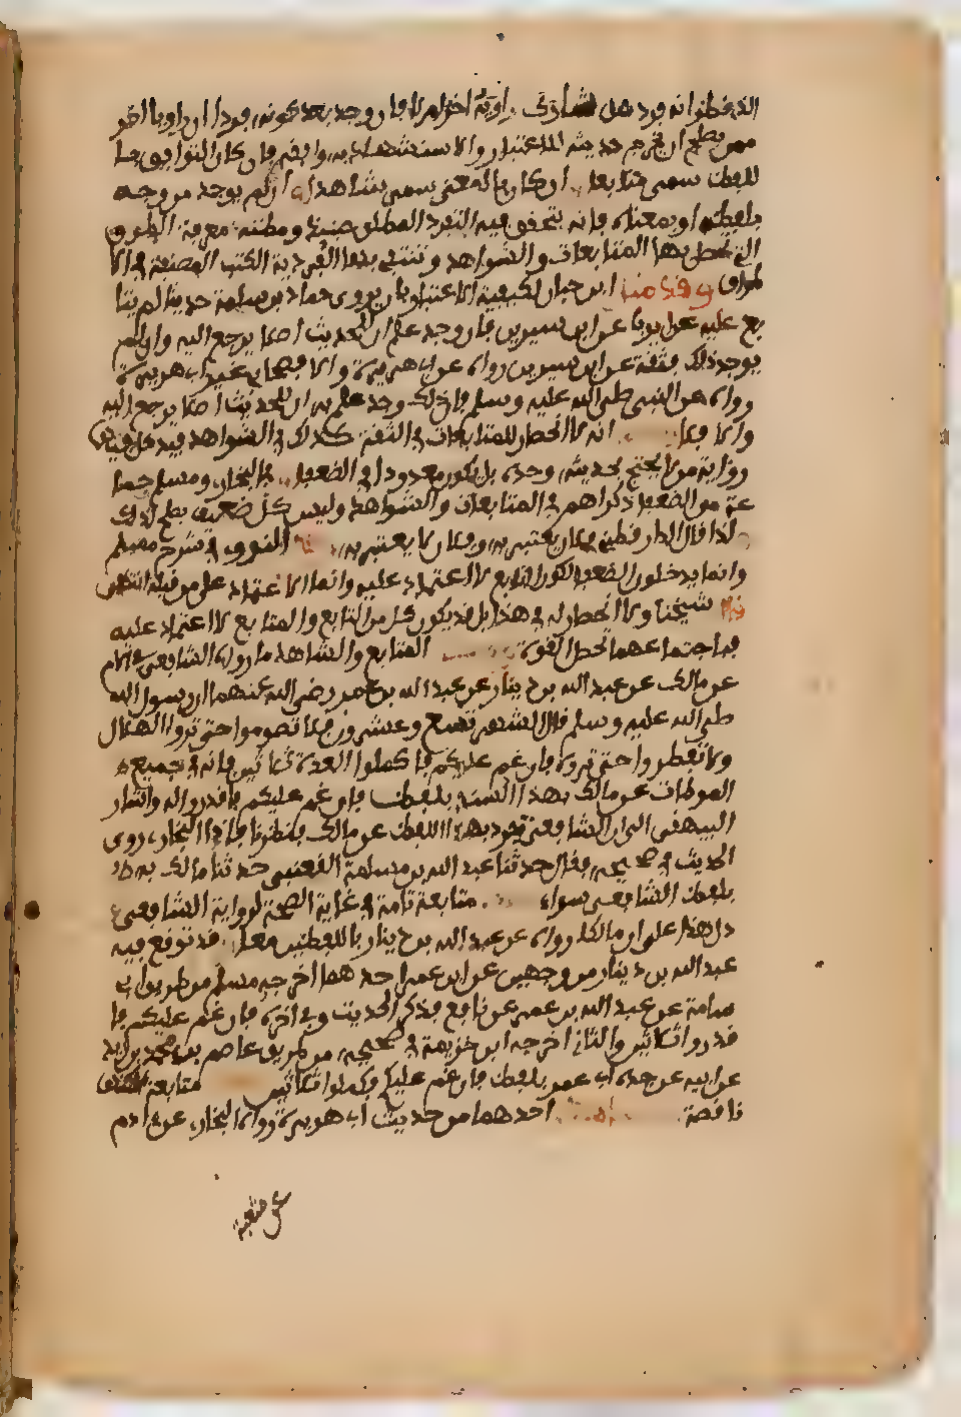 الذي يظن انه فرد هل شارك راويه اخر ام لا فان وجد بعد كونه فردا ان راويا اخر
ممن يصلح ان يخرج حديثه للاعتبار والاستشهاد به وافقه فان كان التوافق
باللفظ سمي متابعا وان كان بالمعنى سمي شاهدا وان لم يوجد من وجه
بلفظه او بمعناه فانه يتحقق فيه التفرد المطلق حينئذ ومظنة معرفة الطرق
التي تحصل بها المتابعات والشواهد وتنتفي بها الفردية الكتب المصنفة في الا
طراف وقد مثل ابن حبان لكيفية الاعتبار بان يروي حماد بن سلمة حديثا لم يتا
بع عليه عن ايوب عن ابن سيرين فان وجد علم ان للحديث اصلا يرجع اليه وان لم
يوجد ذلك فثقة عن ابن سيرين رواه عن ابي هريرة والا فصحابي غير ابي هريرة
رواه عن النبي صلى الله عليه وسلم فاي ذلك وجد علم به ان للحديث اصلا يرجع اليه
والا فلا انه لا انحصار للمتابعات في الثقة كذلك في الشواهد فيدخل فيها
رواية من لا يحتج بحديثه وحده بل يكون معدودا في الضعفاء البخاري ومسلم جما
عة من الضعفاء ذكراهم في المتابعات والشواهد وليس كل ضعيف يصلح لذلك
ولذا قال الدارقطني فلان يعتبر به وفلان لا يعتبر به النووي في شرح مسلم
وانما يدخلون الضعفاء لكون التابع لا اعتماد عليه وانما الاعتماد على من قبله انتهى
قال شيخنا ولا انحصار له في هذا بل قد يكون كل من التابع والمتابع لا اعتماد عليه
فباجتماعهما تحصل القوة المتابع والشاهد ما رواه الشافعي في الام
عن مالك عن عبد الله بن دينار عن عبد الله بن عمر رضي الله عنهما ان رسول الله
صلى الله عليه وسلم قال الشهر تسع وعشرون فلا تصوموا حتى تروا الهلال
ولا تفطروا حتى تروه فان غم عليكم فاكملوا العدة ثلاثين فانه في جميع
الموطات عن مالك بهذا السند بلفظ فان غم عليكم فاقدروا له واشار
البيهقي الى ان الشافعي تفرد بهذا اللفظ عن مالك فنظرنا فاذا البخاري روى
الحديث في صحيحه فقال حدثنا عبد الله بن مسلمة القعنبي حدثنا مالك به
بلفظ الشافعي سواء متابعة تامة في غاية الصحة لرواية الشافعي
دل هذا على ان مالكا رواه عن عبد الله بن دينار باللفظين معا قد توبع فيه
عبد الله بن دينار من وجهين عن ابن عمر احدهما اخرجه مسلم من طريق ابي
سامة عن عبيد الله بن عمر عن نافع فذكر الحديث وفي اخره فان غم عليكم فا
قدروا ثلاثين والثاني اخرجه ابن خزيمة في صحيحه من طريق عاصم بن محمد بن زيد
عن ابيه عن جده ابن عمر بلفظ فان غم عليكم فكملوا ثلاثين متابعة
ناقصة احدهما من حديث ابي هريرة رواه البخاري عن ادم
عن شعبة